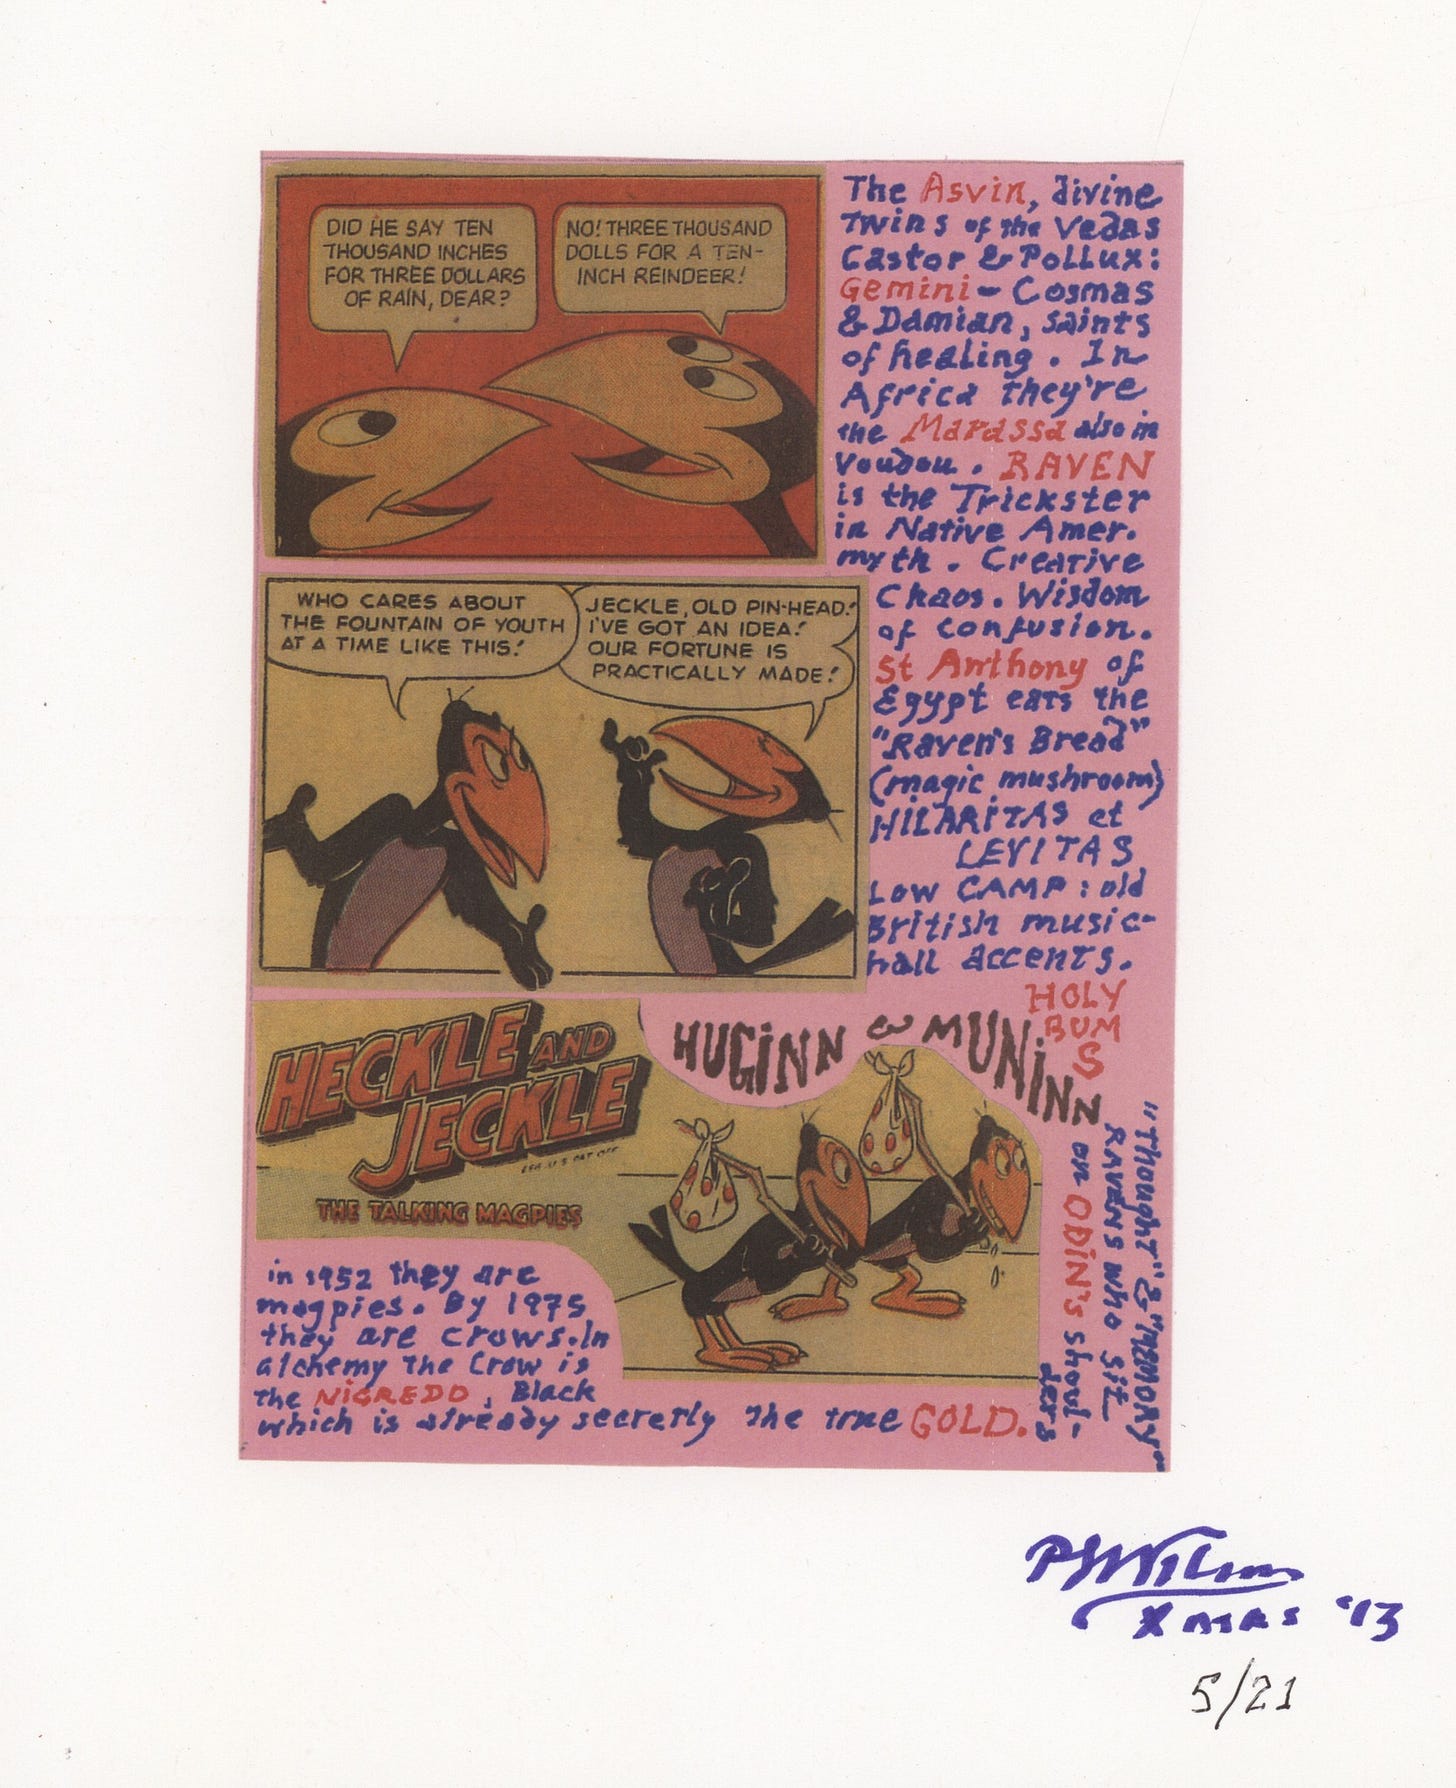 DID HE SAY TEN
THOUSAND INCHES
FOR THREE DOLLARS
OF RAIN, DEAR?
NO! THREE THOUSAND
DOLLS FOR A TEN-
INCH REINDEER!
The Asvin, divine
Twins of the Vedas
Castor & Pollux:
Gemini – Cosmas
& Damian, saints
of healing. In
Africa they're
the Marassa also in
Voudou. RAVEN
is the Trickster
in Native Amer.
myth. Creative
Chaos. Wisdom
of confusion.
St Anthony of
Egypt eats the
"Raven's Bread"
(magic mushroom)
HILARITAS et
LEVITAS
Low CAMP: old
British music-
hall accents.
WHO CARES ABOUT
THE FOUNTAIN OF YOUTH
AT A TIME LIKE THIS!
JECKLE, OLD PIN-HEAD!
I'VE GOT AN IDEA!
OUR FORTUNE IS
PRACTICALLY MADE!
HOLY
BUM
S
HECKLE AND
JECKLE
REG. U.S. PAT. OFF.
THE TALKING MAGPIES
HUGINN & MUNINN
"Thought" & "Memory"
RAVENS who sit
on ODIN's shoul-
ders
in 1952 they are
magpies. By 1975
they are crows. In
alchemy the Crow is
the NIGREDO, Black
which is already secretly the true GOLD.
PLWilson
Xmas '13
5/21